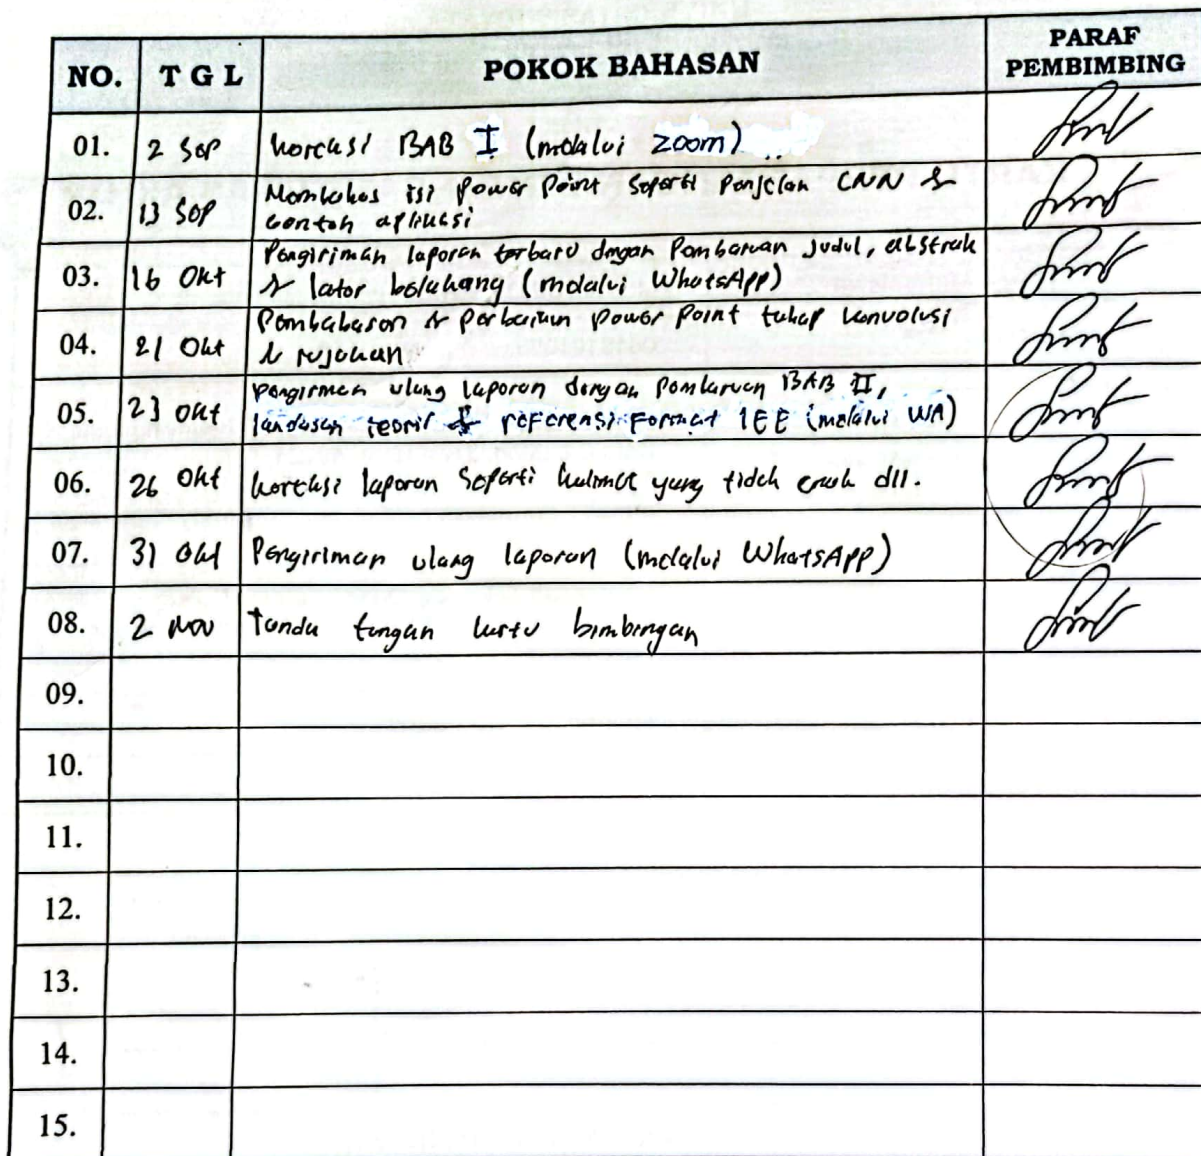 NO. T G L POKOK BAHASAN PARAF
PEMBIMBING
01. 2 Sep koreksi BAB I (melalui Zoom)
02. 13 Sep Membahas isi Power Point Seperti Penjelan CNN &
contoh aplikasi
03. 16 Okt Pengiriman laporan terbaru dengan Pembaruan judul, abstrak
& lator belakang (melalui WhatsApp)
04. 21 Okt Pembahasan & Perbaikan power point tahap konvolusi
& rujukan
05. 23 Okt pengirman ulang laporan dengan Pembaruan BAB II,
landasan teoril & referensi format IEE (melalui WA)
06. 26 Okt koreksi laporan Seperti kalimat yang tidak enak dll.
07. 31 Okt Pengiriman ulang laporan (melalui WhatsApp)
08. 2 Nov tanda tangan kartu bimbingan
09.
10.
11.
12.
13.
14.
15.